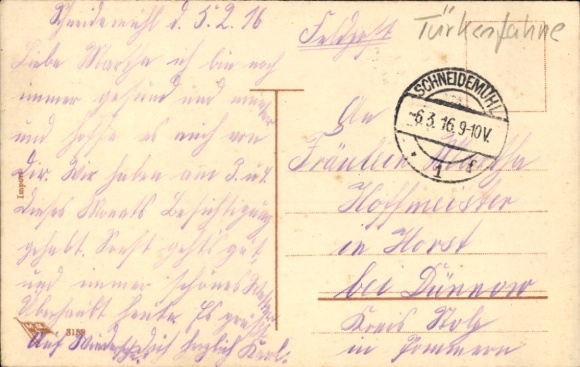 Schneidemühl d. 5.2.16
Liebe Martha ich bin noch
immer gesund und munter
und hoffe es auch von
Dir. Wir haben am 3. u 4.
dieses Monats Besichtigung
gehabt. Sonst gehts gut
und immer schönes Wetter
Überhaupt heute. Es grüßt
Auf Wiedersehn Dich herzlich Karl.
Import
3159
Feldpost
Türkenfahne
SCHNEIDEMÜHL
-6.3.16.9-10V.
* 1 f
An
Fräulein Martha
Hoffmeister
in Horst
bei Dünnow
Kreis Stolp
in Pommern